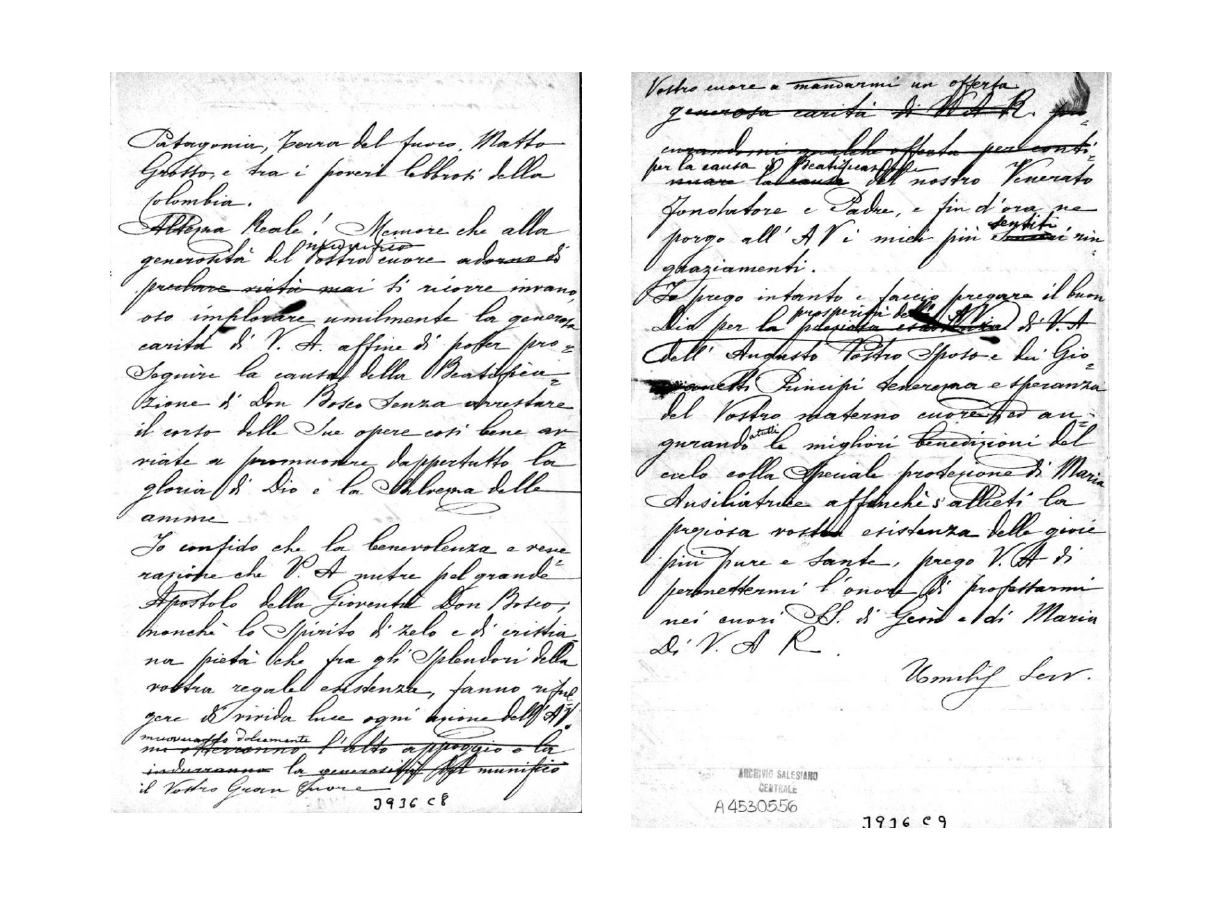 Patagonia, Terra del fuoco, Matto
Grosso, e tra i poveri lebbrosi della
Colombia.
Altezza Reale! Memore che alla
munifico
generosità del Vostro cuore adorno di
preclare virtù mai si ricorre invano,
oso implorare umilmente la generosa
carità di V. A. affine di poter pro=
seguire la causa della Beatifica=
zione di Don Bosco senza arrestare
il corso delle Sue opere così bene av
viate a promuovere dappertutto la
gloria di Dio e la Salvezza delle
anime
Io confido che la benevolenza e vene
razione che V. A nutre pel grande
Apostolo della Gioventù Don Bosco,
nonchè lo Spirito di zelo e di cristia
na pietà che fra gli Splendori della
vostra regale esistenza, fanno riful
gere di vivida luce ogni azione dell'A.V.
muoveranno dolcemente
mi otterranno l'alto appoggio e la
indurranno la generosità del munifico
il Vostro Gran Cuore
J936 C8
Vostro cuore a mandarmi un offerta
generosa carità di V. A R. pro=
curandomi qualche offerta per conti=
per la causa di Beatificazione
nuare la causa del nostro Venerato
Fondatore e Padre, e fin d'ora ne
sentiti
porgo all'A V i miei più rin
graziamenti.
Io prego intanto e faccio pregare il buon
prosperità della
Dio per la preziosa esistenza di V. A
dell'Augusto Vostro Sposo e dei Gio
vanetti Principi tenerezza e speranza
del Vostro materno cuore, ed au=
a tutti
gurando le migliori benedizioni del
cielo colla Speciale protezione di Maria
Ausiliatrice affinchè s'allieti la
preziosa vostra esistenza delle gioie
più pure e sante, prego V. A di
permettermi l'onor di professarmi
nei cuori SS. di Gesù e di Maria
Di V. A R.
Umilis Serv.
ARCHIVIO SALESIANO
CENTRALE
A4530556
J936 C9